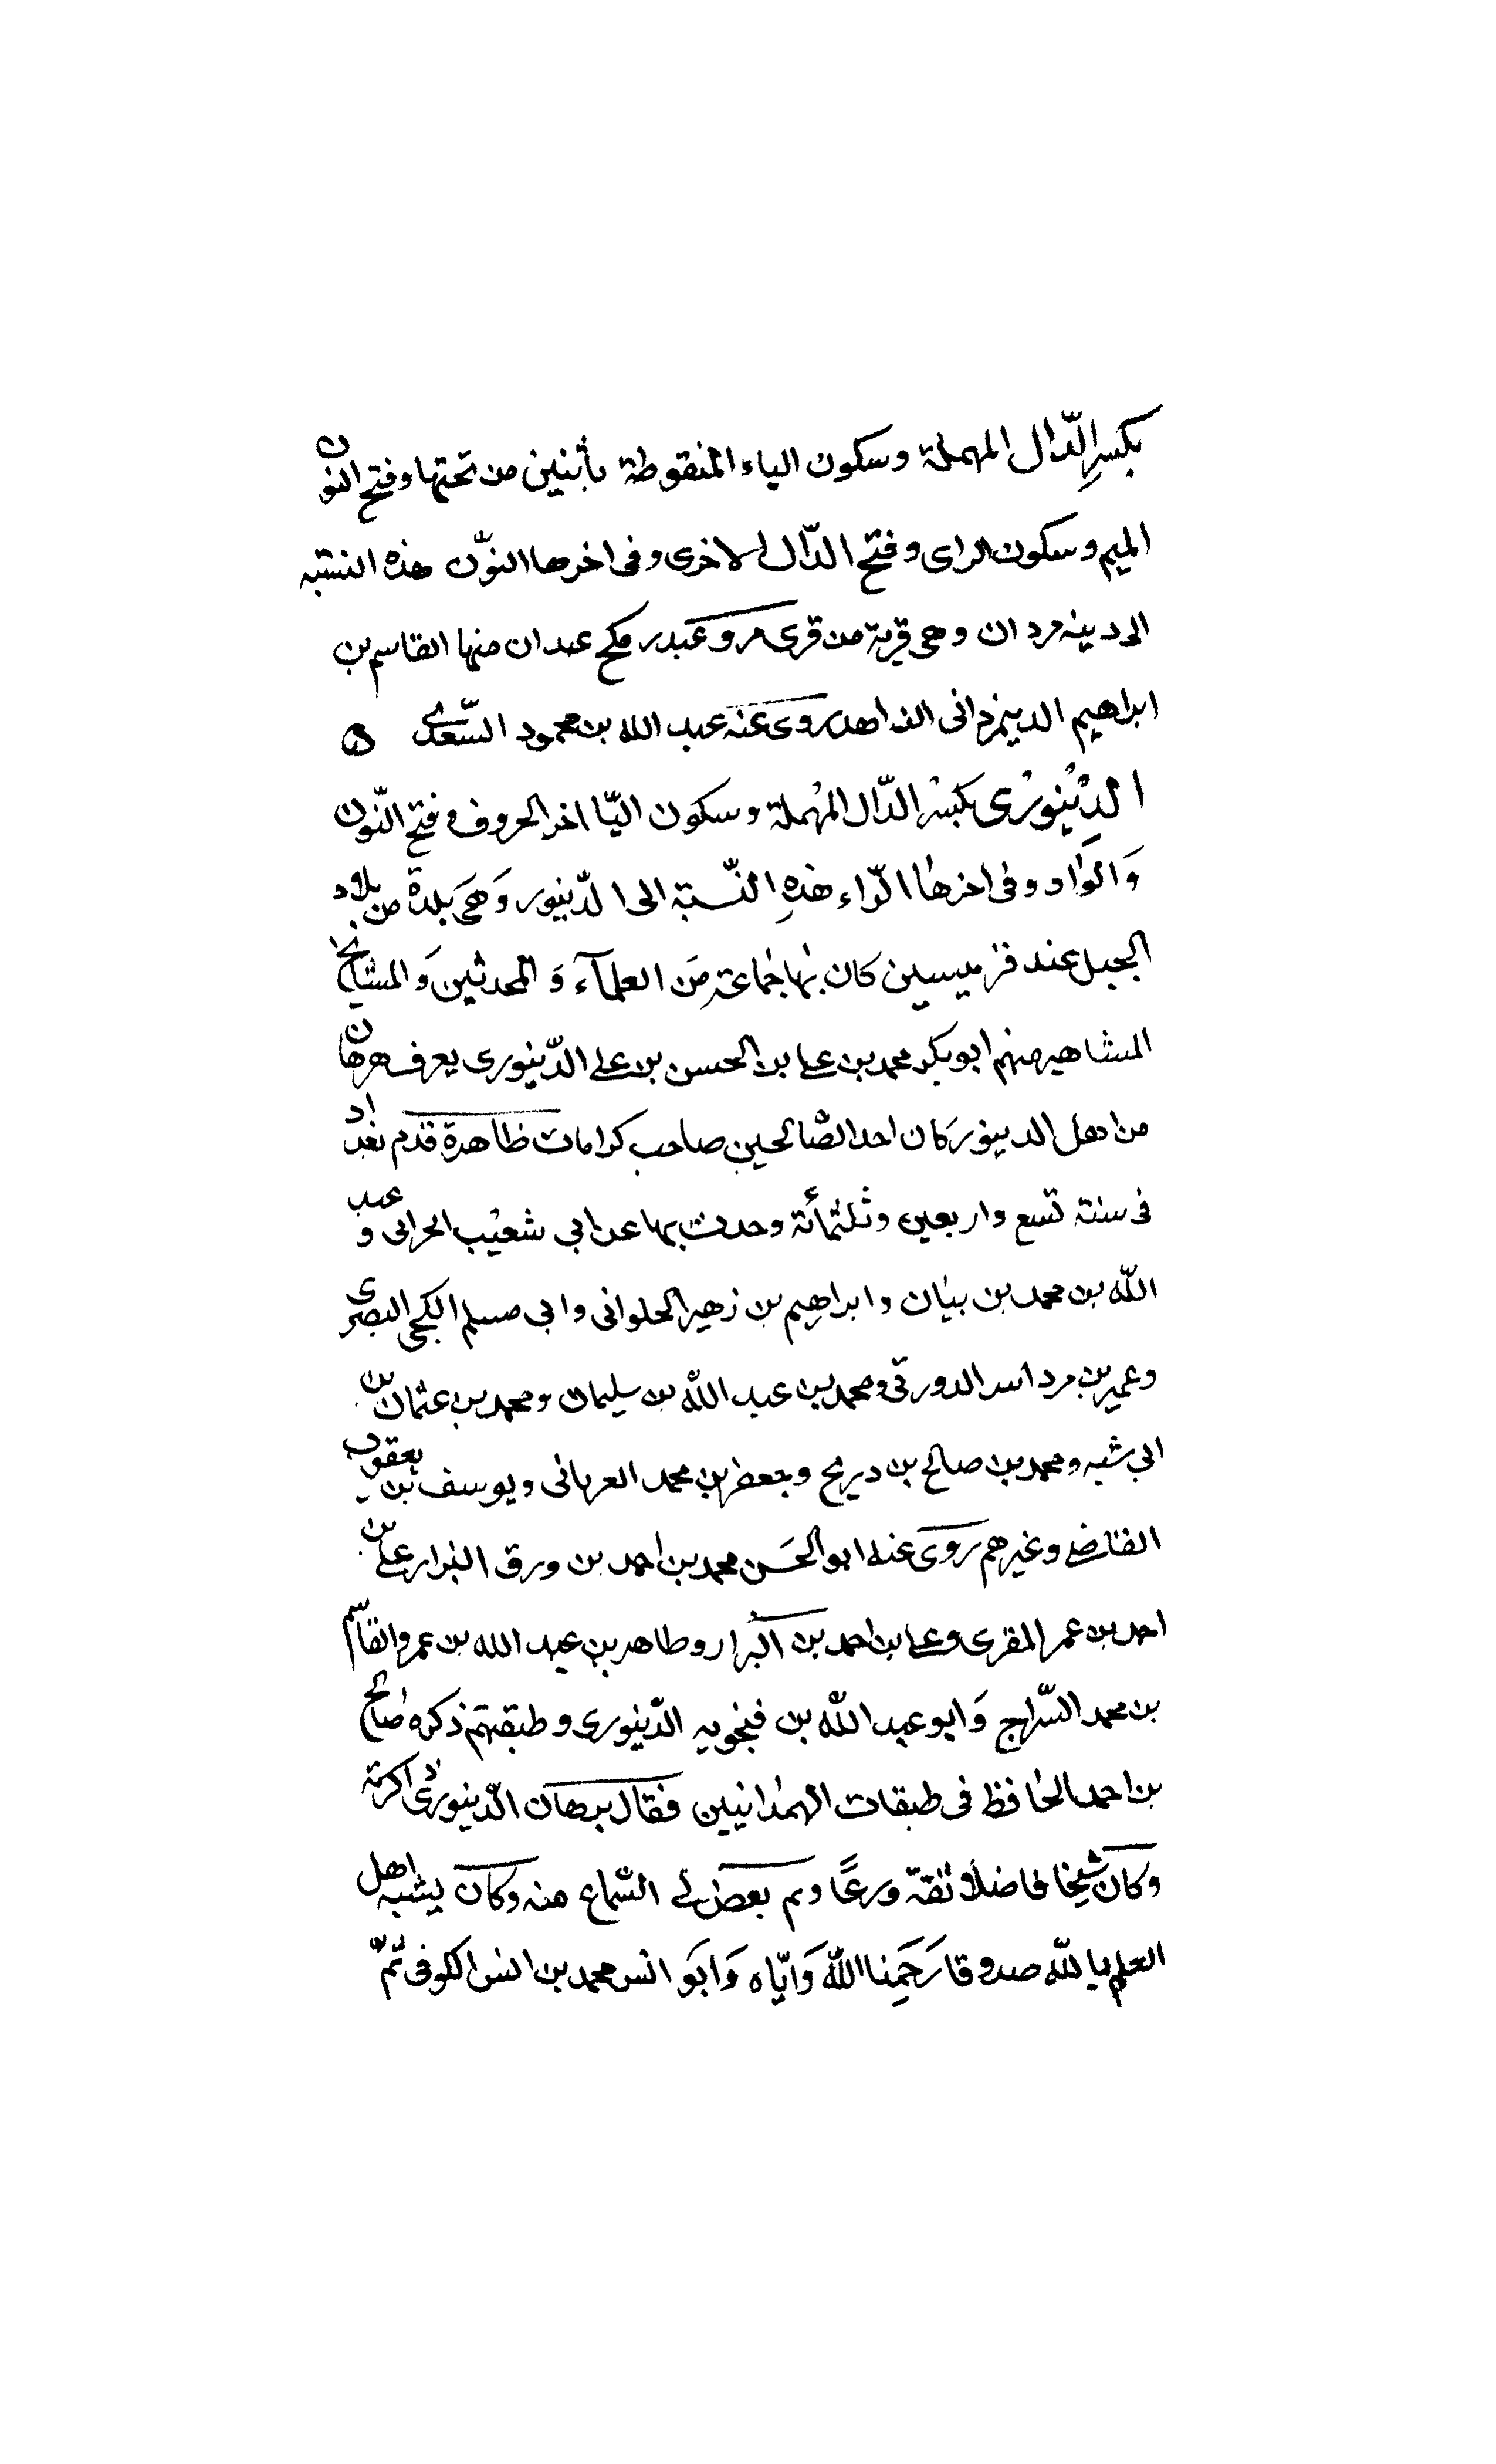 بكسرِ الدّال المهملة وسكون الياء المنقوطة بأثنين من تحتها وفتح النون
الميم وسكون الراى وفتح الدّال الاخرى وفى اخرها النوّن هذه النسّبه
الى دينه مردان وهى قرية من قرى مرو عند ر مكح عبدان منها القاسم بن
ابراهيم الدينمزدانى الزاهد روى عنه عبد الله بن محمود السّعدى ه
الدِيْنَورْى بكسْر الدّال المهْملة وسكون اليّا اخر الحروف وفتح النّون
وَالوَاو وفى اخرهٰا الرّاء هٰذهِ النسّبة الى الدّينور وَهىَ بلدة من بلاد
الجبل عند قرميسين كان بهٰا جٰماعة مَن العلمآء وَ المحدثين وَالمشايخ
المشاهير منهم ابو بكر محمد بن على بن الحسن بن على الدّينورى يعرف ببرهان
من اهل الدينور كان احد الصّالحين صاحب كرامات ظاهرة قدم بغداد
فى سنة تسع واربعين وثلثمأئة وحدث بها عن ابى شعيْب الحرانى و عبد
اللّه بن محمد بن بنٰان وابراهيم بن زهير الحلوانى وابى مسلم الكجى البصرى
وعمير بن مرداس الدورقى ومحمد بن عبد اللّه بن سليمان ومحمد بن عثمان بن
ابى شبه ومحمد بن صالح بن ديريح وجعفر بن محمد العربانى ويوسف بن يعقوب
القاضى وغيرهم روى عنه ابو الحسَن محمد بن احمد بن ورق البزار على بن
احمد بن عمر المقرى وعلى بن احمد بن البرار وطاهر بن عبد الله بن عمر والقاسم
بن محمد السّراج وَابو عبد اللّه بن فنجويه الدّينورى وطبقتهم ذكره صٰالح
بن احمد الحٰافظ فى طبقات الهمدٰانيين فقال برهان الدّينورٰى ادركته
وكان شيخا فاضلًا ثقةً ورعًا ولم يعض لى السّماع منه وكان يشبه اهل
العلم باللّه صدوقا رَحَمِنا اللّٰه وَايّاه وَابَو انس محمد بن انس الكوفى ثّم